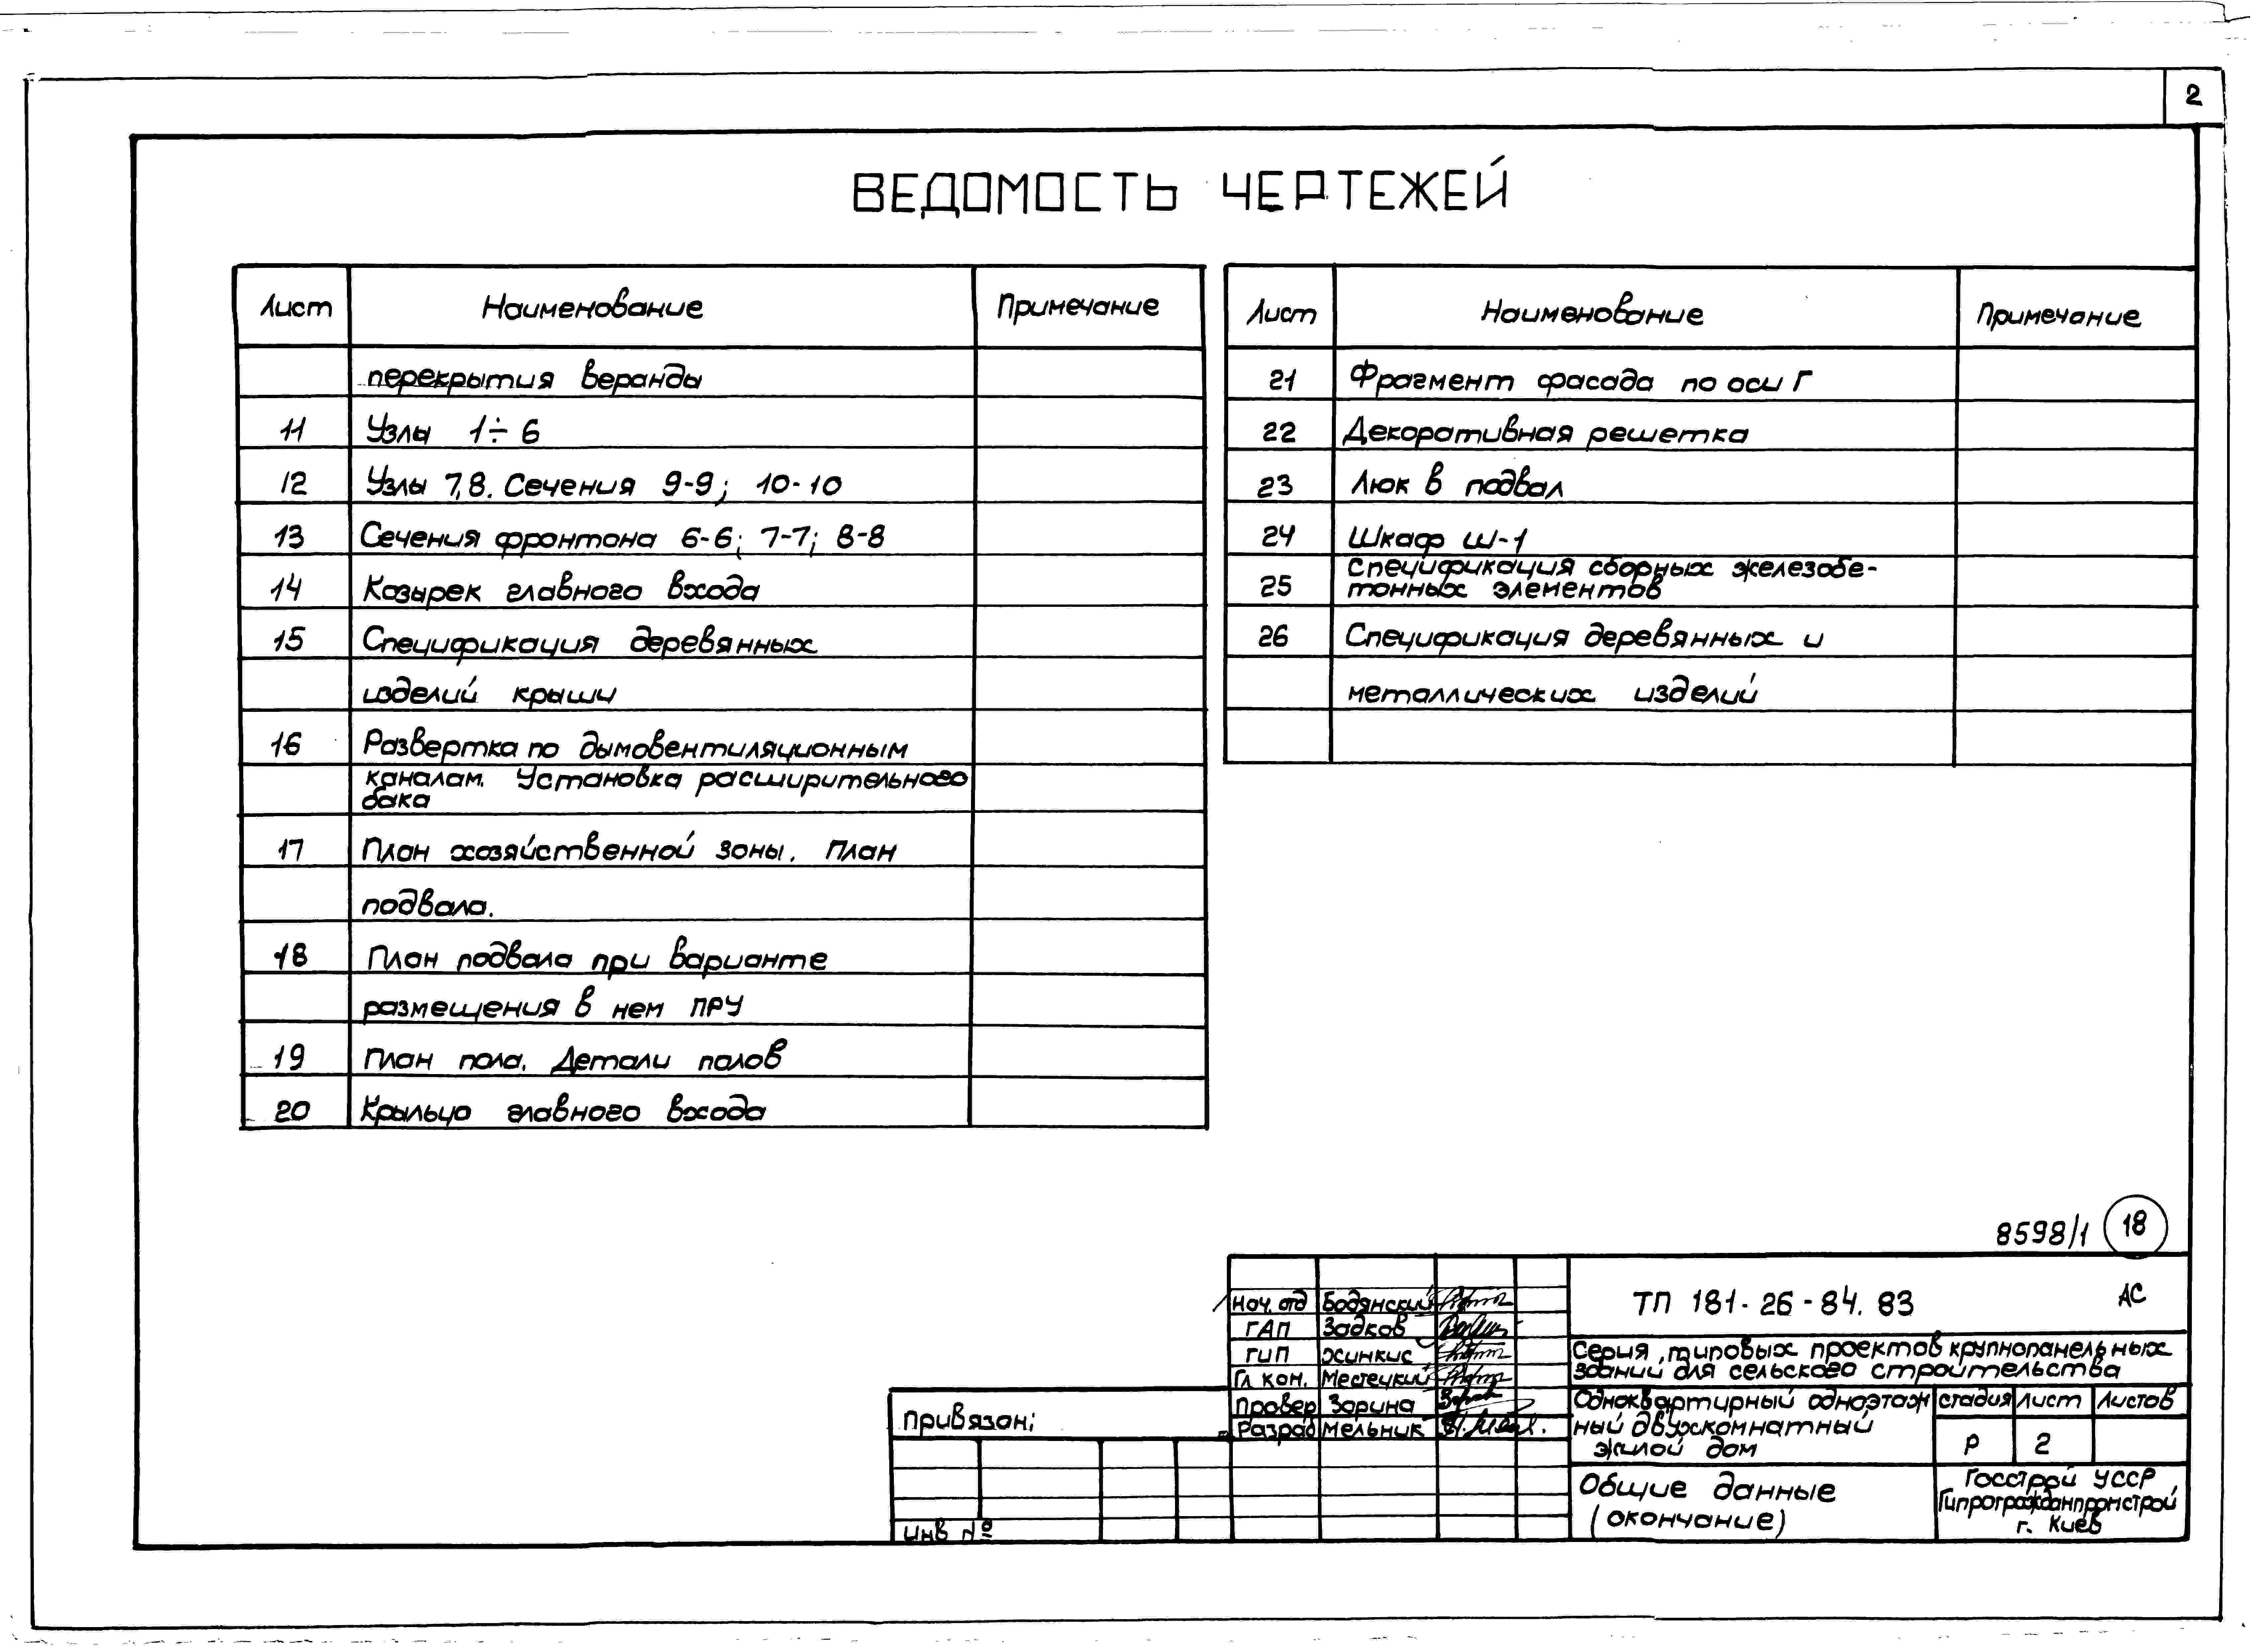 2
ВЕДОМОСТЬ ЧЕРТЕЖЕЙ
Лист Наименование Примечание
перекрытия веранды
11 Узлы 1÷6
12 Узлы 7,8. Сечения 9-9; 10-10
13 Сечения фронтона 6-6; 7-7; 8-8
14 Козырек главного входа
15 Спецификация деревянных
изделий крыши
16 Развертка по дымовентиляционным
каналам. Установка расширительного
бака
17 План хозяйственной зоны. План
подвала.
18 План подвала при варианте
размещения в нем ПРУ
19 План пола. Детали полов
20 Крыльцо главного входа
Лист Наименование Примечание
21 Фрагмент фасада по оси Г
22 Декоративная решетка
23 Люк в подвал
24 Шкаф Ш-1
Спецификация сборных железобе-
25 тонных элементов
26 Спецификация деревянных и
металлических изделий
8598/1 18
Нач. отд Бодянский
ГАП Задков
ГИП Хинкис
Гл кон. Местецкий
Провер Зорина
Разраб Мельник
Привязан;
Инв №
ТП 181-26-84.83 АС
Серия типовых проектов крупнопанельных
зданий для сельского строительства
Одноквартирный одноэтаж
ный двухкомнатный
жилой дом
стадия Лист Листов
Р 2
Общие данные
(окончание)
Госстрой УССР
Гипрогражданпромстрой
г. Киев